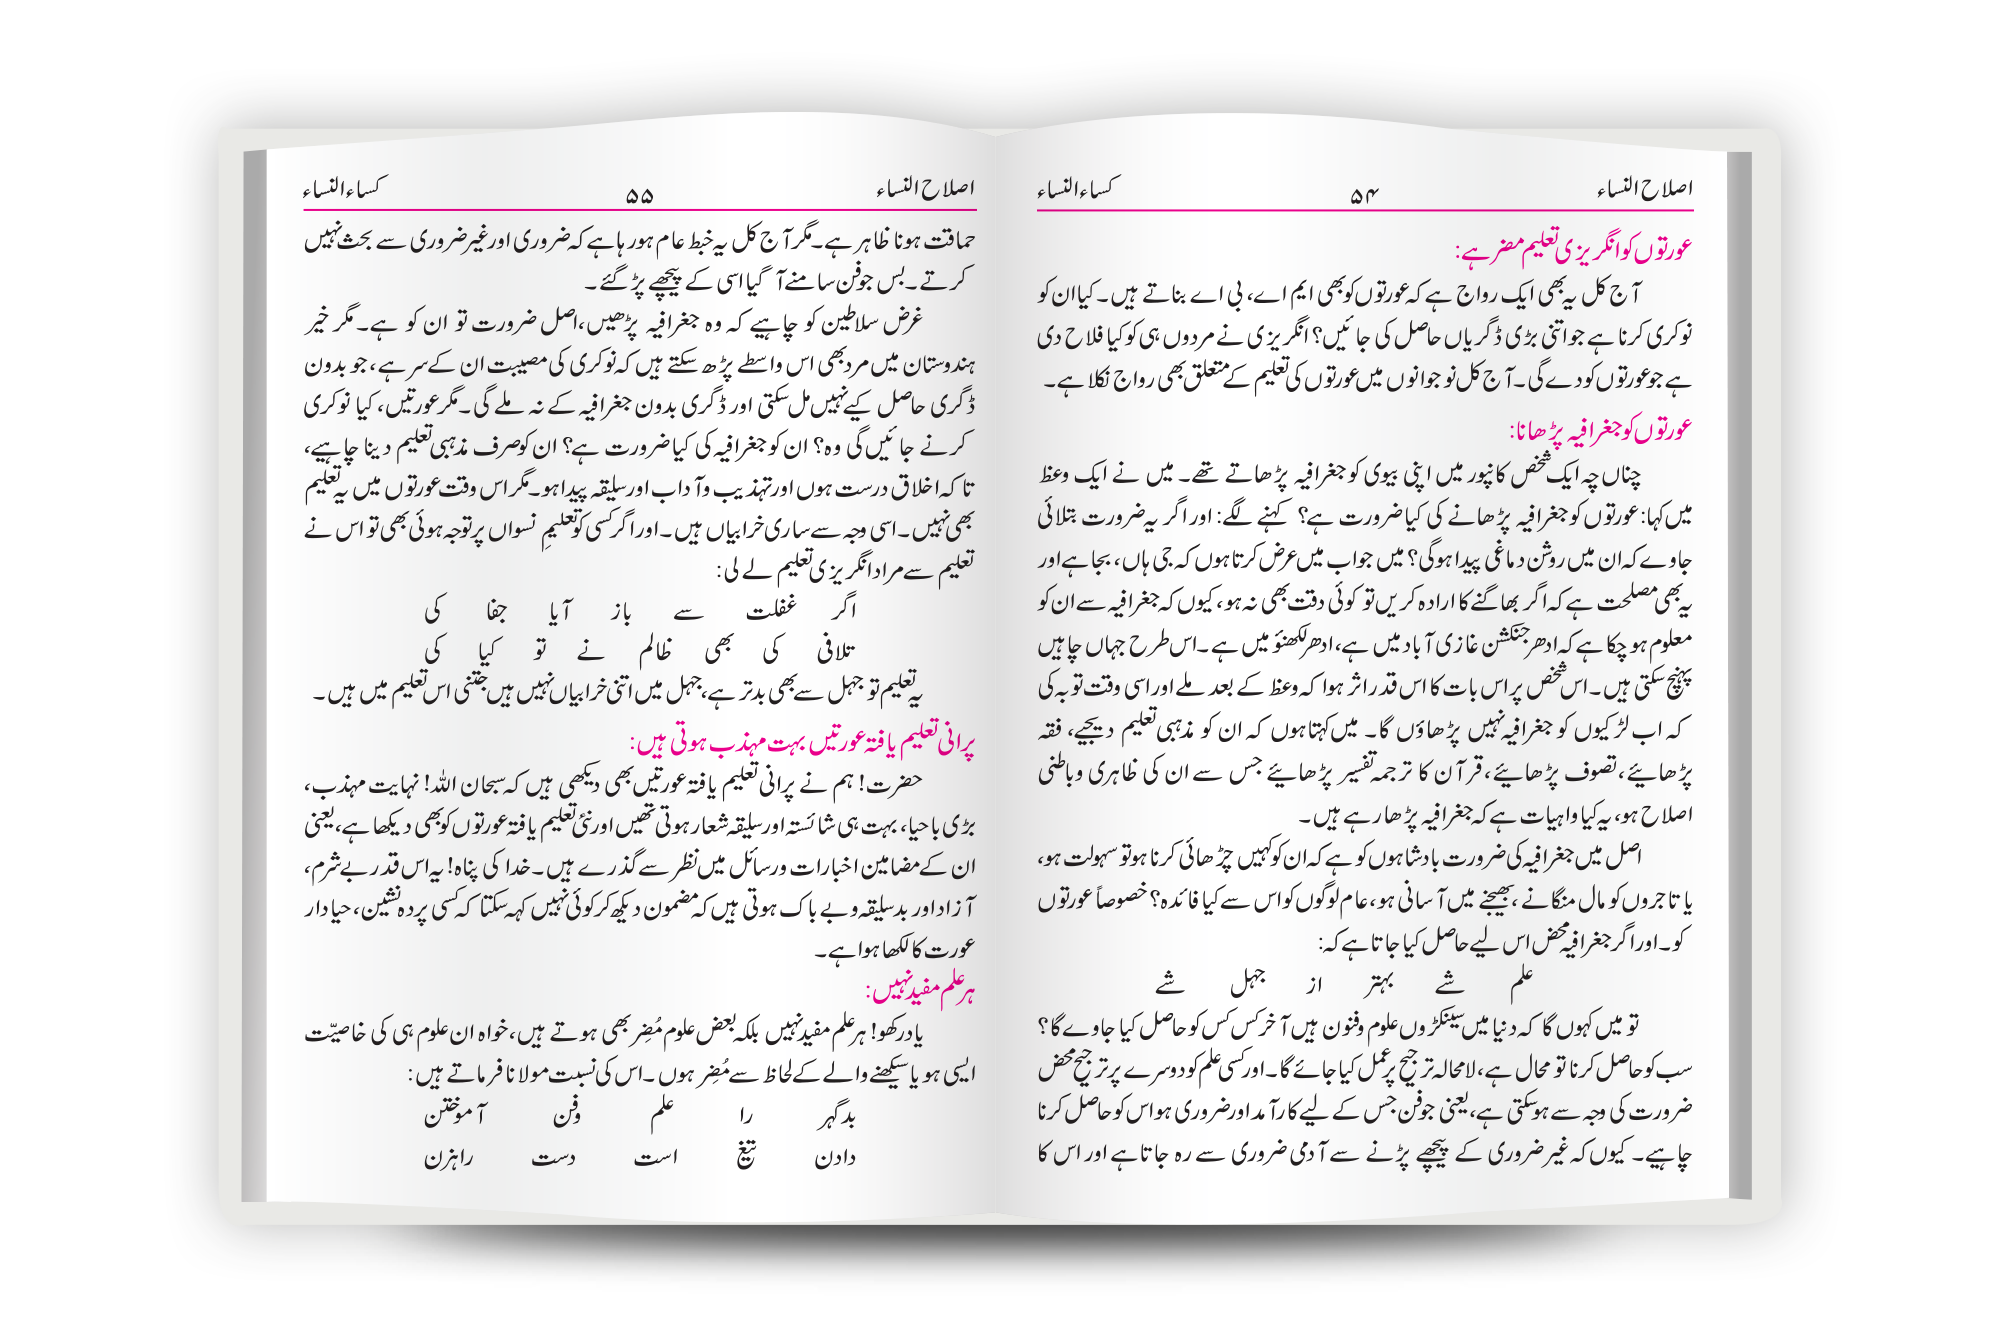 اصلاح النساء ۵۴ کساء النساء
عورتوں کو انگریزی تعلیم مضر ہے:
آج کل یہ بھی ایک رواج ہے کہ عورتوں کو بھی ایم اے، بی اے بناتے ہیں۔ کیا ان کو
نوکری کرنا ہے جو اتنی بڑی ڈگریاں حاصل کی جائیں؟ انگریزی نے مردوں ہی کو کیا فلاح دی
ہے جو عورتوں کو دے گی۔ آج کل نوجوانوں میں عورتوں کی تعلیم کے متعلق بھی رواج نکلا ہے۔
عورتوں کو جغرافیہ پڑھانا:
چناں چہ ایک شخص کانپور میں اپنی بیوی کو جغرافیہ پڑھاتے تھے۔ میں نے ایک وعظ
میں کہا: عورتوں کو جغرافیہ پڑھانے کی کیا ضرورت ہے؟ کہنے لگے: اور اگر یہ ضرورت بتلائی
جاوے کہ ان میں روشن دماغی پیدا ہوگی؟ میں جواب میں عرض کرتا ہوں کہ جی ہاں، بجا ہے اور
یہ بھی مصلحت ہے کہ اگر بھاگنے کا ارادہ کریں تو کوئی دقت بھی نہ ہو، کیوں کہ جغرافیہ سے ان کو
معلوم ہو چکا ہے کہ ادھر جنکشن غازی آباد میں ہے، ادھر لکھنؤ میں ہے۔ اس طرح جہاں چاہیں
پہنچ سکتی ہیں۔ اس شخص پر اس بات کا اس قدر اثر ہوا کہ وعظ کے بعد ملے اور اسی وقت توبہ کی
کہ اب لڑکیوں کو جغرافیہ نہیں پڑھاؤں گا۔ میں کہتا ہوں کہ ان کو مذہبی تعلیم دیجیے، فقہ
پڑھایئے، تصوف پڑھایئے، قرآن کا ترجمہ تفسیر پڑھایئے جس سے ان کی ظاہری و باطنی
اصلاح ہو، یہ کیا واہیات ہے کہ جغرافیہ پڑھا رہے ہیں۔
اصل میں جغرافیہ کی ضرورت بادشاہوں کو ہے کہ ان کو کہیں چڑھائی کرنا ہو تو سہولت ہو،
یا تاجروں کو مال منگانے، بھیجنے میں آسانی ہو، عام لوگوں کو اس سے کیا فائدہ؟ خصوصاً عورتوں
کو۔ اور اگر جغرافیہ محض اس لیے حاصل کیا جاتا ہے کہ:
علم شے بہتر از جہل شے
تو میں کہوں گا کہ دنیا میں سینکڑوں علوم و فنون ہیں آخر کس کس کو حاصل کیا جاوے گا؟
سب کو حاصل کرنا تو محال ہے، لامحالہ ترجیح پر عمل کیا جائے گا۔ اور کسی علم کو دوسرے پر ترجیح محض
ضرورت کی وجہ سے ہوسکتی ہے، یعنی جو فن جس کے لیے کارآمد اور ضروری ہو اس کو حاصل کرنا
چاہیے۔ کیوں کہ غیر ضروری کے پیچھے پڑنے سے آدمی ضروری سے رہ جاتا ہے اور اس کا
اصلاح النساء ۵۵ کساء النساء
حماقت ہونا ظاہر ہے۔ مگر آج کل یہ خبط عام ہو رہا ہے کہ ضروری اور غیر ضروری سے بحث نہیں
کرتے۔ بس جو فن سامنے آ گیا اسی کے پیچھے پڑ گئے۔
غرض سلاطین کو چاہیے کہ وہ جغرافیہ پڑھیں، اصل ضرورت تو ان کو ہے۔ مگر خیر
ہندوستان میں مرد بھی اس واسطے پڑھ سکتے ہیں کہ نوکری کی مصیبت ان کے سر ہے، جو بدون
ڈگری حاصل کیے نہیں مل سکتی اور ڈگری بدون جغرافیہ کے نہ ملے گی۔ مگر عورتیں، کیا نوکری
کرنے جائیں گی وہ؟ ان کو جغرافیہ کی کیا ضرورت ہے؟ ان کو صرف مذہبی تعلیم دینا چاہیے،
تاکہ اخلاق درست ہوں اور تہذیب و آداب اور سلیقہ پیدا ہو۔ مگر اس وقت عورتوں میں یہ تعلیم
بھی نہیں۔ اسی وجہ سے ساری خرابیاں ہیں۔ اور اگر کسی کو تعلیمِ نسواں پر توجہ ہوئی بھی تو اس نے
تعلیم سے مراد انگریزی تعلیم لے لی:
اگر غفلت سے باز آیا جفا کی
تلافی کی بھی ظالم نے تو کیا کی
یہ تعلیم تو جہل سے بھی بدتر ہے، جہل میں اتنی خرابیاں نہیں ہیں جتنی اس تعلیم میں ہیں۔
پرانی تعلیم یافتہ عورتیں بہت مہذب ہوتی ہیں:
حضرت! ہم نے پرانی تعلیم یافتہ عورتیں بھی دیکھی ہیں کہ سبحان اللہ! نہایت مہذب،
بڑی باحیا، بہت ہی شائستہ اور سلیقہ شعار ہوتی تھیں اور نئی تعلیم یافتہ عورتوں کو بھی دیکھا ہے، یعنی
ان کے مضامین اخبارات و رسائل میں نظر سے گذرے ہیں۔ خدا کی پناہ! یہ اس قدر بے شرم،
آزاد اور بدسلیقہ و بے باک ہوتی ہیں کہ مضمون دیکھ کر کوئی نہیں کہہ سکتا کہ کسی پردہ نشین، حیادار
عورت کا لکھا ہوا ہے۔
ہر علم مفید نہیں:
یاد رکھو! ہر علم مفید نہیں بلکہ بعض علوم مُضِر بھی ہوتے ہیں، خواہ ان علوم ہی کی خاصیّت
ایسی ہو یا سیکھنے والے کے لحاظ سے مُضِر ہوں۔ اس کی نسبت مولانا فرماتے ہیں:
بدگہر را علم وفن آموختن
دادن تیغ است دست راہزن